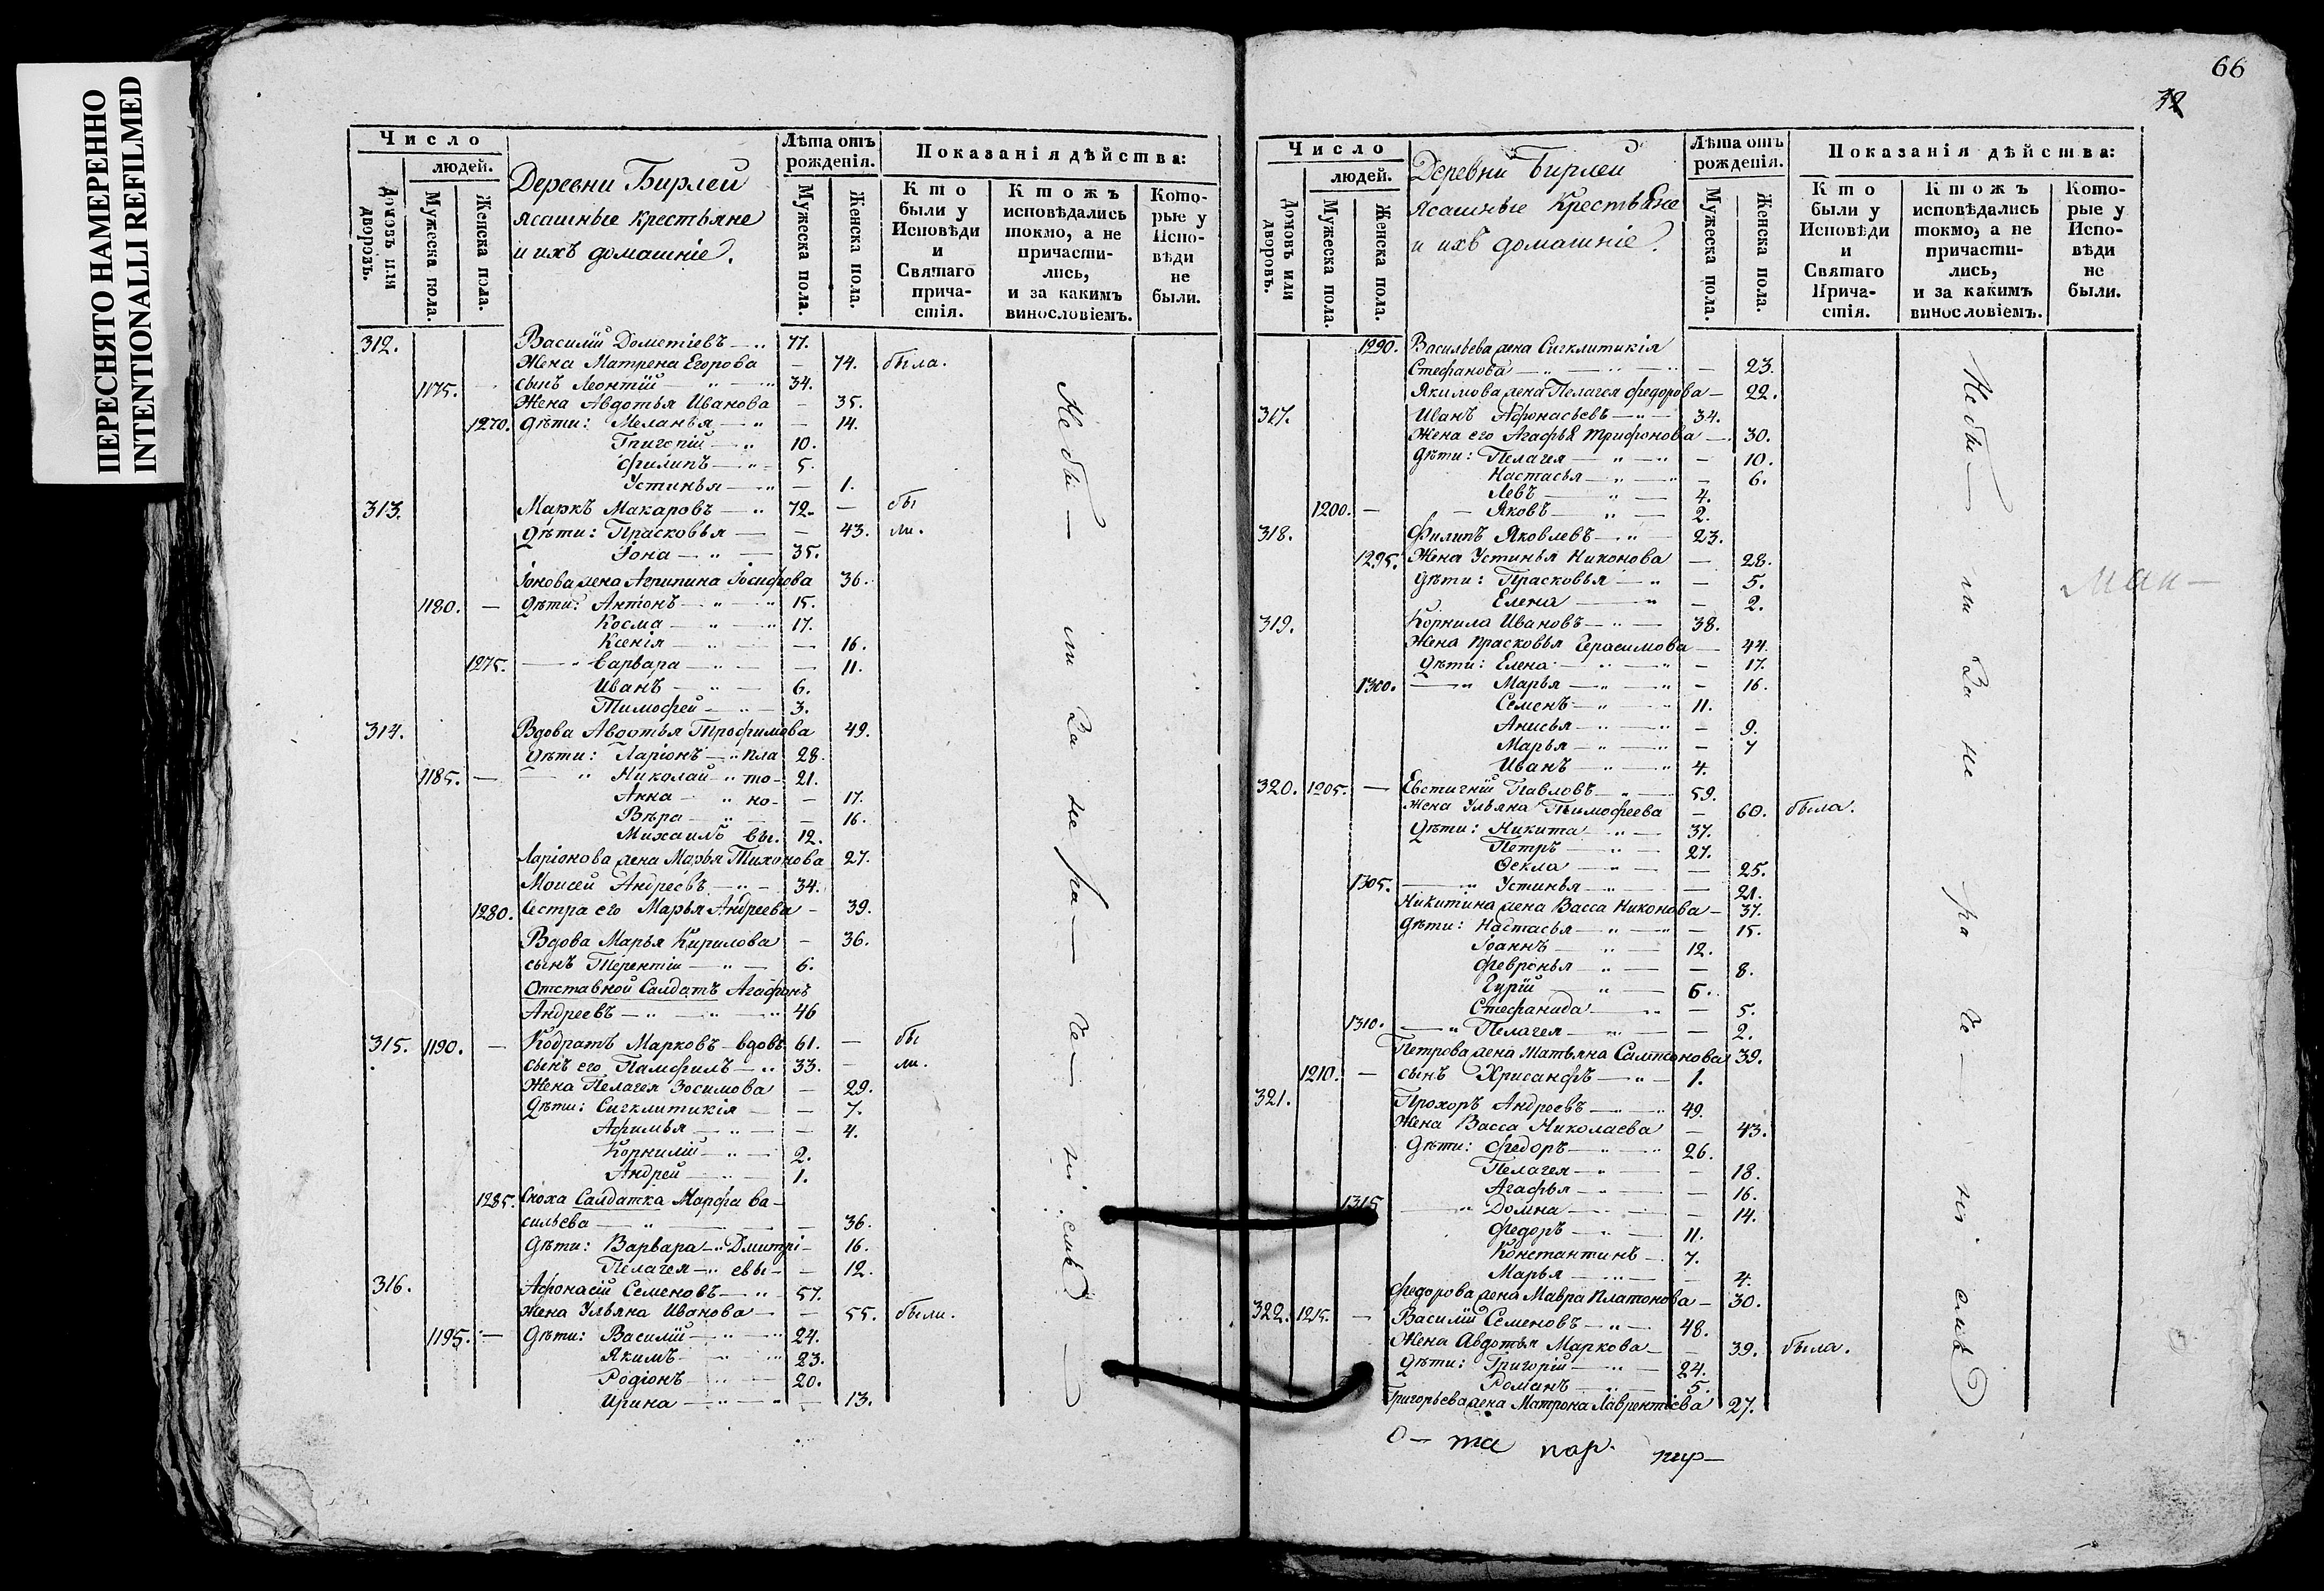 ПЕРЕСНЯТО НАМЕРЕННО
INTENTIONALLI REFILMED
Число
людей.
Домовъ или дворовъ.
Мужеска пола.
Женска пола.
Деревни Бирлеи
ясашные крестьяне
и ихъ домашніе.
Лѣта отъ рожденія.
Мужеска пола.
Женска пола.
Показанія дѣйства:
Кто были у Исповѣди и Святаго причастія.
Ктожъ исповѣдались токмо, а не причастились, и за какимъ винословіемъ.
Которые у Исповѣди не были.
312. Василій Дометіевъ 77.
Жена Матрена Егорова – 74. была.
1175. сынъ Леонтій 34.
Жена Авдотья Иванова – 35.
1270. дѣти: Меланья – 14.
Григорій 10.
Филипъ 5.
Устинья – 1.
313. Маркъ Макаровъ 72. – бы
дѣти: Прасковья – 43. ли.
Іона 35.
Іонова жена Агрипина Іосифова 36.
1180. – дѣти: Антонъ 15.
Косма 17.
Ксенія – 16.
1275. Варвара – 11.
Иванъ 6.
Тимофей 3.
314. Вдова Авдотья Трофимова 49.
дѣти: Ларіонъ – Пла 28.
1185. – Николай то- 21.
Анна но- – 17.
Вѣра – 16.
Михаилъ вы. 12.
Ларіонова жена Марья Тихонова 27.
Моисей Андреевъ 34.
1280. Сестра его Марья Андреева – 39.
Вдова Марья Кирилова – 36.
сынъ Терентій 6.
Отставной Салдатъ Агафонъ
Андреевъ 46
315. 1190. – Кодратъ Марковъ вдовъ 61. – бы
сынъ его Памфилъ 33. – ли.
Жена Пелагея Зосимова – 29.
дѣти: Сигклитикія – 7.
Афимья – 4.
Корнилій 2.
Андрей 1.
1285. Сноха Салдатка Марфа Ва-
сильева – 36.
дѣти: Варвара Дмитрі- 16.
Пелагея евы – 12.
316. Афонасій Семеновъ 57.
Жена Ульяна Иванова – 55. были.
1195. – дѣти: Василій 24.
Якимъ 23.
Родіонъ 20.
Ирина – 13.
Не бы – ли за не ра – че – ні – емъ
66
32
Число
людей.
Домовъ или дворовъ.
Мужеска пола.
Женска пола.
Деревни Бирлеи
Ясашные Крестьяне
и ихъ домашніе.
Лѣта отъ рожденія.
Мужеска пола.
Женска пола.
Показанія дѣйства:
Кто были у Исповѣди и Святаго Причастія.
Ктожъ исповѣдались токмо, а не причастились, и за какимъ винословіемъ.
Которые у Исповѣди не были.
1290. Васильева жена Сигклитикія
Стефанова – 23.
Якимова жена Пелагея Федорова – 22.
317. Иванъ Афонасьевъ 34.
Жена его Агафья Трифонова – 30.
дѣти: Пелагея – 10.
Настасья – 6.
Левъ 4.
1200. – Яковъ 2.
318. Филипъ Яковлевъ 23.
1295. Жена Устинья Никонова – 28.
дѣти: Прасковья – 5.
Елена – 2.
319. Корнила Ивановъ 38.
Жена Прасковья Герасимова – 44.
дѣти: Елена – 17.
1300. Марья – 16.
Семенъ 11.
Анисья – 9.
Марья – 7
Иванъ 4.
320. 1205. – Евстигній Павловъ 59.
Жена Ульяна Тимофеева – 60. была.
дѣти: Никита 37.
Петръ 27.
Фекла – 25.
1305. Устинья – 21.
Никитина жена Васса Никонова – 37.
дѣти: Настасья – 15.
Іоаннъ 12.
Февронья – 8.
Гурій 6.
Стефанида – 5.
1310. Пелагея – 2.
Петрова жена Матьяна Самсонова 39.
1210. – сынъ Хрисанфъ 1.
321. Прохоръ Андреевъ 49.
Жена Васса Николаева – 43.
дѣти: Федоръ 26.
Пелагея – 18.
Агафья – 16.
1315 Домна – 14.
Федоръ 11.
Константинъ 7.
Марья – 4.
Федорова жена Мавра Платонова – 30.
322. 1215. – Василій Семеновъ 48.
Жена Авдотья Маркова – 39. была.
дѣти: Григорій 24.
Романъ 5.
Григорьева жена Матрона Лаврентіева 27.
Не бы – ли за не ра че – ні – емъ
О – та пар.